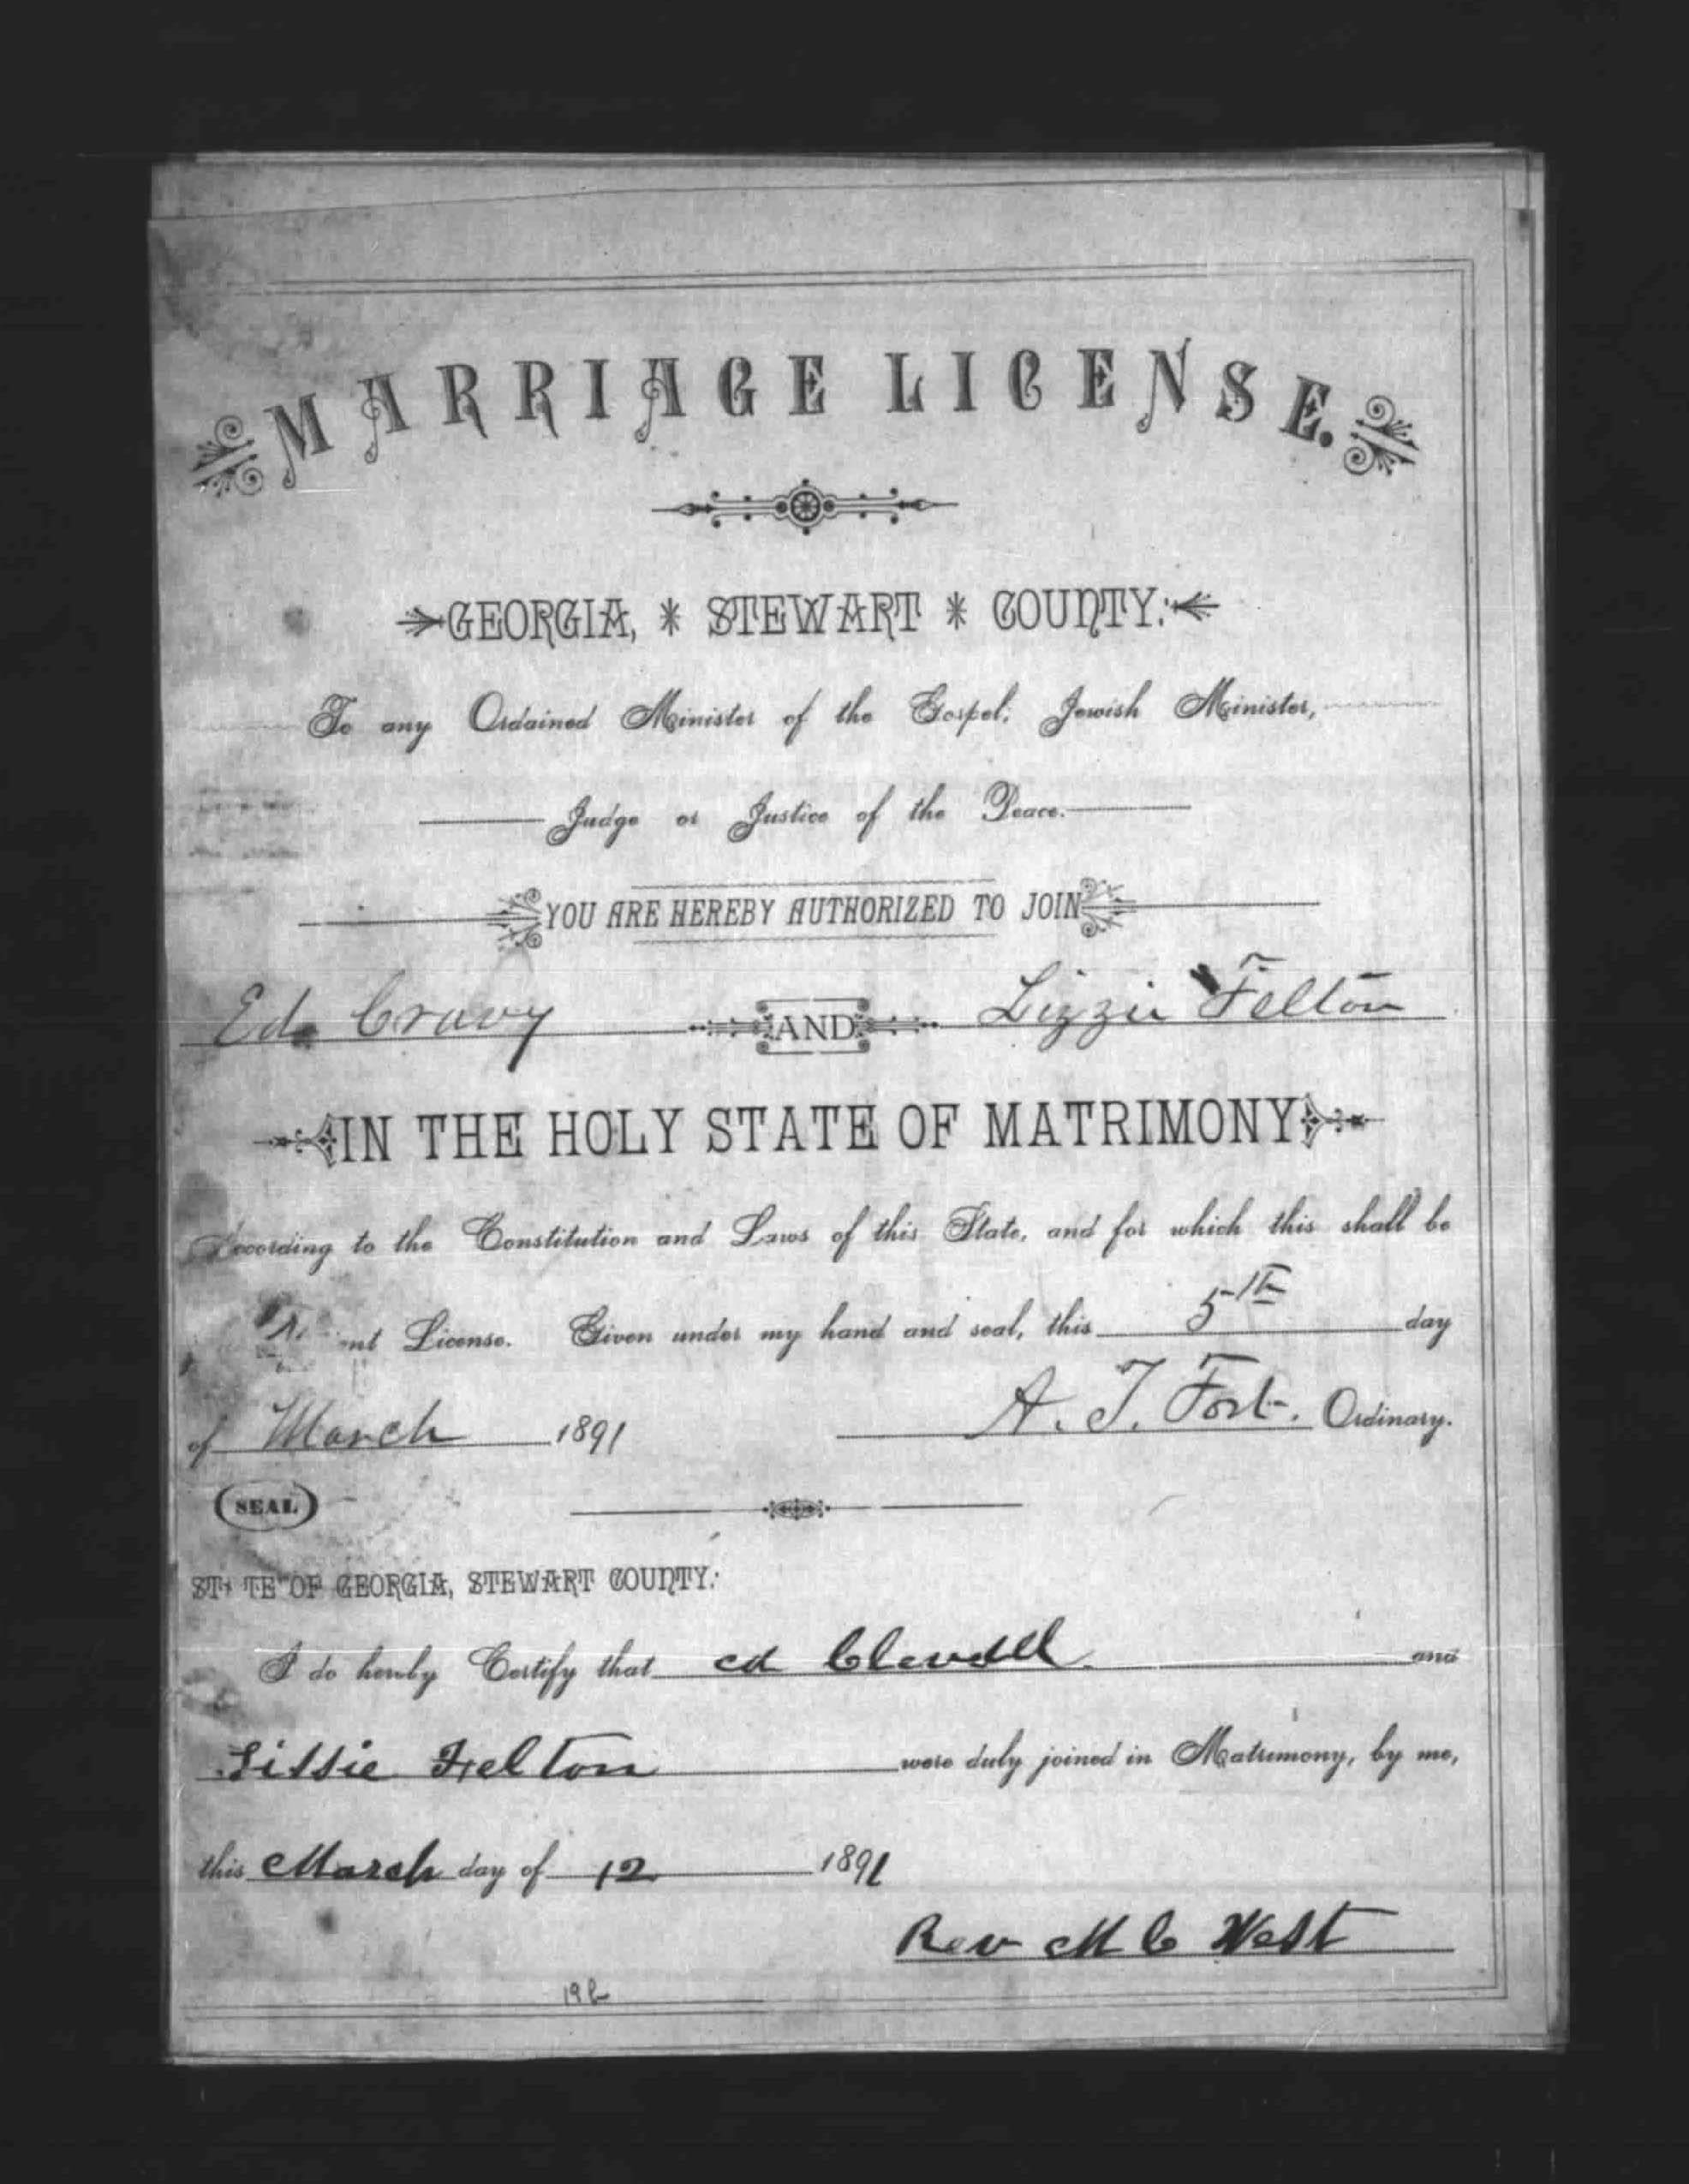 MARRIAGE LICENSE.
GEORGIA, * STEWART * COUNTY:
To any Ordained Minister of the Gospel; Jewish Minister,
Judge or Justice of the Peace.
YOU ARE HEREBY AUTHORIZED TO JOIN
Ed Cravy AND Lizzie Felton
IN THE HOLY STATE OF MATRIMONY
According to the Constitution and Laws of this State, and for which this shall be
License. Given under my hand and seal, this 5th day
of March 1891 A. T. Fort. Ordinary.
SEAL
STATE OF GEORGIA, STEWART COUNTY:
I do hereby Certify that ed and
Lissie Felton were duly joined in Matrimony, by me,
this March day of 12 1891
Rev M C West